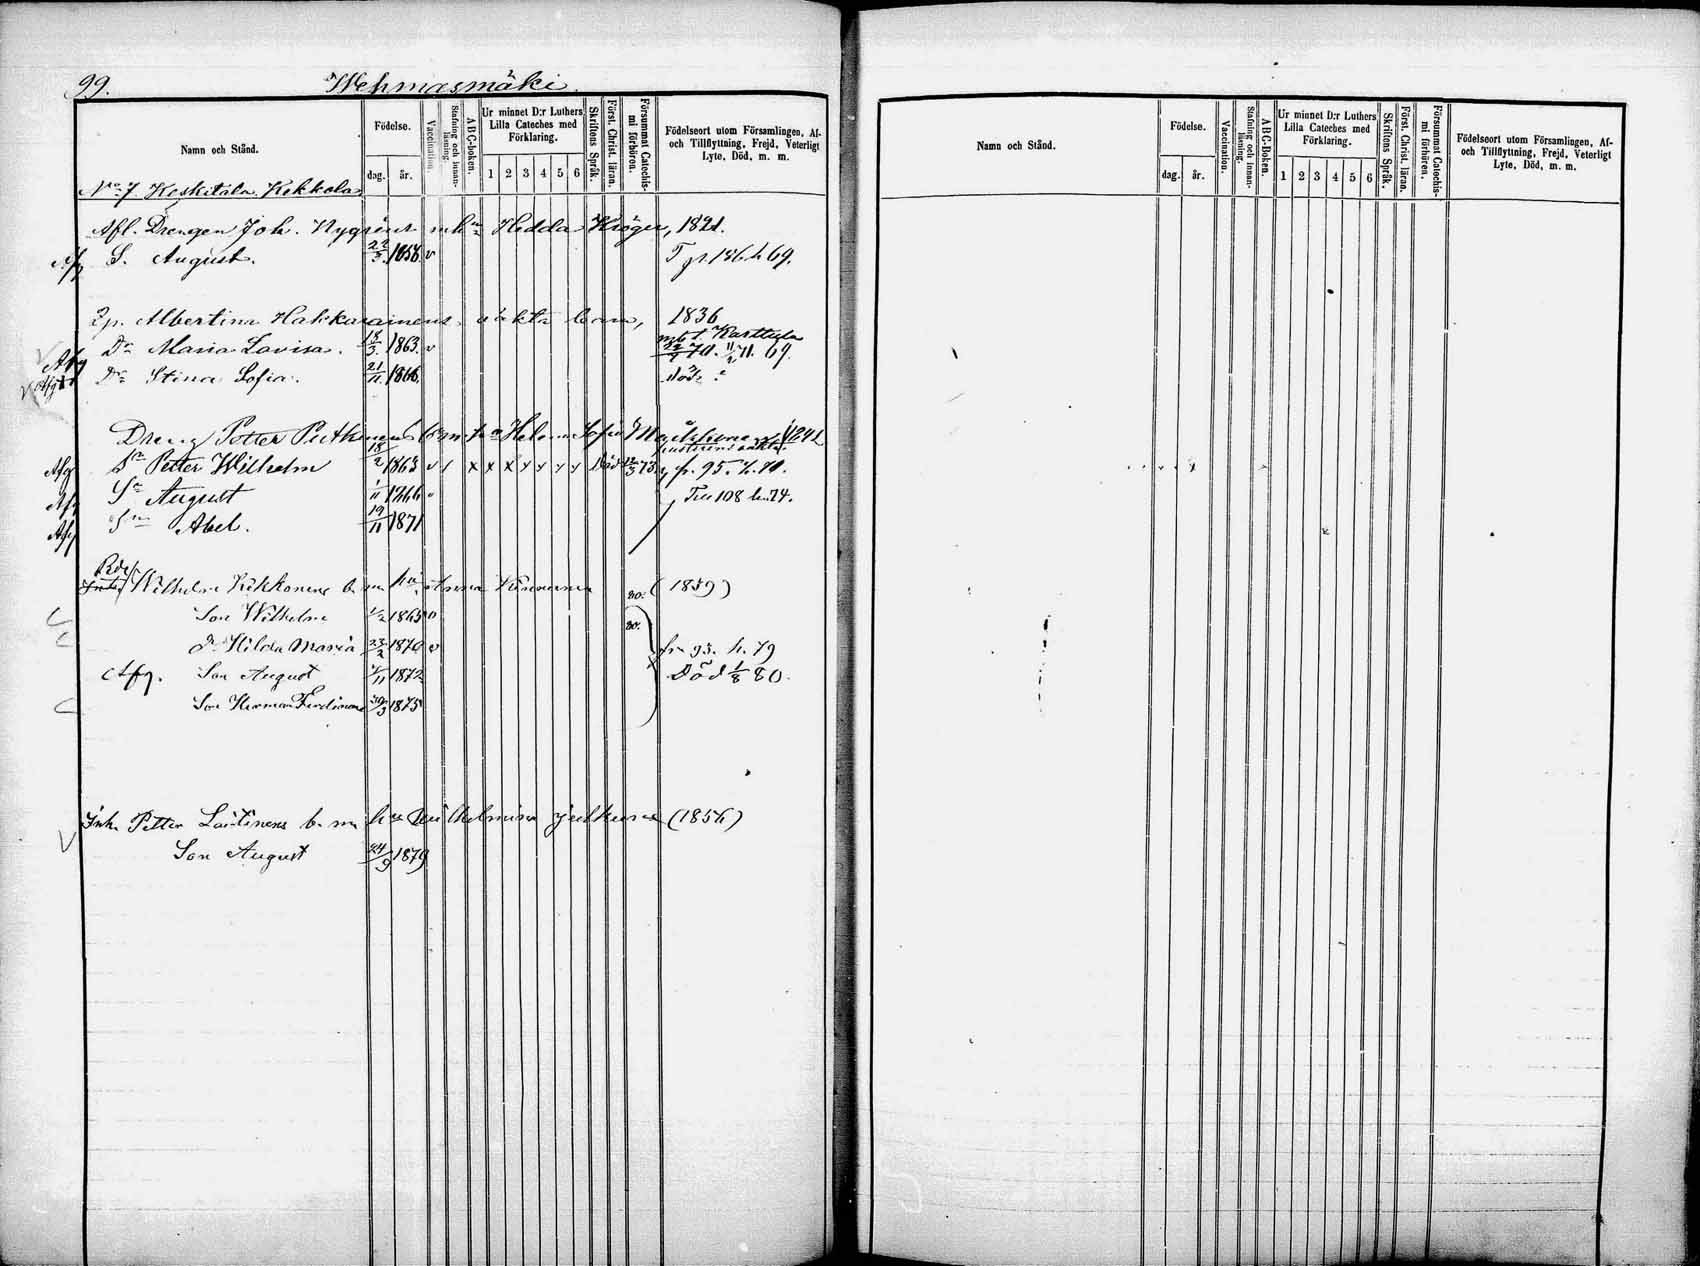 99. Wehmasmäki.
Namn och Stånd.
Födelse.
dag. år.
Vaccination.
Stafning och innanläsning.
ABC-boken.
Ur minnet D:r Luthers Lilla Cateches med Förklaring.
1 2 3 4 5 6
Skriftens Språk.
Först. Christ. läran.
Försummat Catechismi förhören.
Födelseort utom Församlingen, Af- och Tillflyttning, Frejd, Veterligt Lyte, Död, m. m.
No 7. Keskitalo Kekkola
Afl. Drengen Joh. Nygréns enka Hedda Kröger, 1821.
Afg S. August. 22/3 1858 v T. fr. 136 h 69.
Zp. Albertina Hakkarainens oäkta barn, 1836
Afg Dr Maria Lovisa. 18/3 1863. v Karttula 70. 71. 69.
Afg Dr Stina Sofia. 21/11 1866. död ?
Dreng Petter Putkonens b m h Helena Sofia 1842
Afg Sn Petter Wilhelm 18/2 1863 v / x x x x x x x Död 73. fr. 95. h. 70.
Afg Sn August 1/11 1866 " Till 108 h 74.
Afg Sn Abel. 19/11 1871
Rdr Inh. Wilhelm Kekkonens b m hu Anna 80. (1839)
Son Wilhelm 1/2 1865 v 80.
Dr Hilda Maria 23/2 1870 v fr 93. h. 79
Afg. Son August 1/11 1872 Död 1/8 80.
Son Herman Ferdinand 30/3 1875
Inh. Petter Laitinens b m hu Wilhelmina (1856)
Son August 24/9 1879
Namn och Stånd.
Födelse.
dag. år.
Vaccination.
Stafning och innanläsning.
ABC-Boken.
Ur minnet D:r Luthers Lilla Cateches med Förklaring.
1 2 3 4 5 6
Skriftens Språk.
Först. Christ. läran.
Försummat Catechismi förhören.
Födelseort utom Församlingen, Af- och Tillflyttning, Frejd, Veterligt Lyte, Död, m. m.